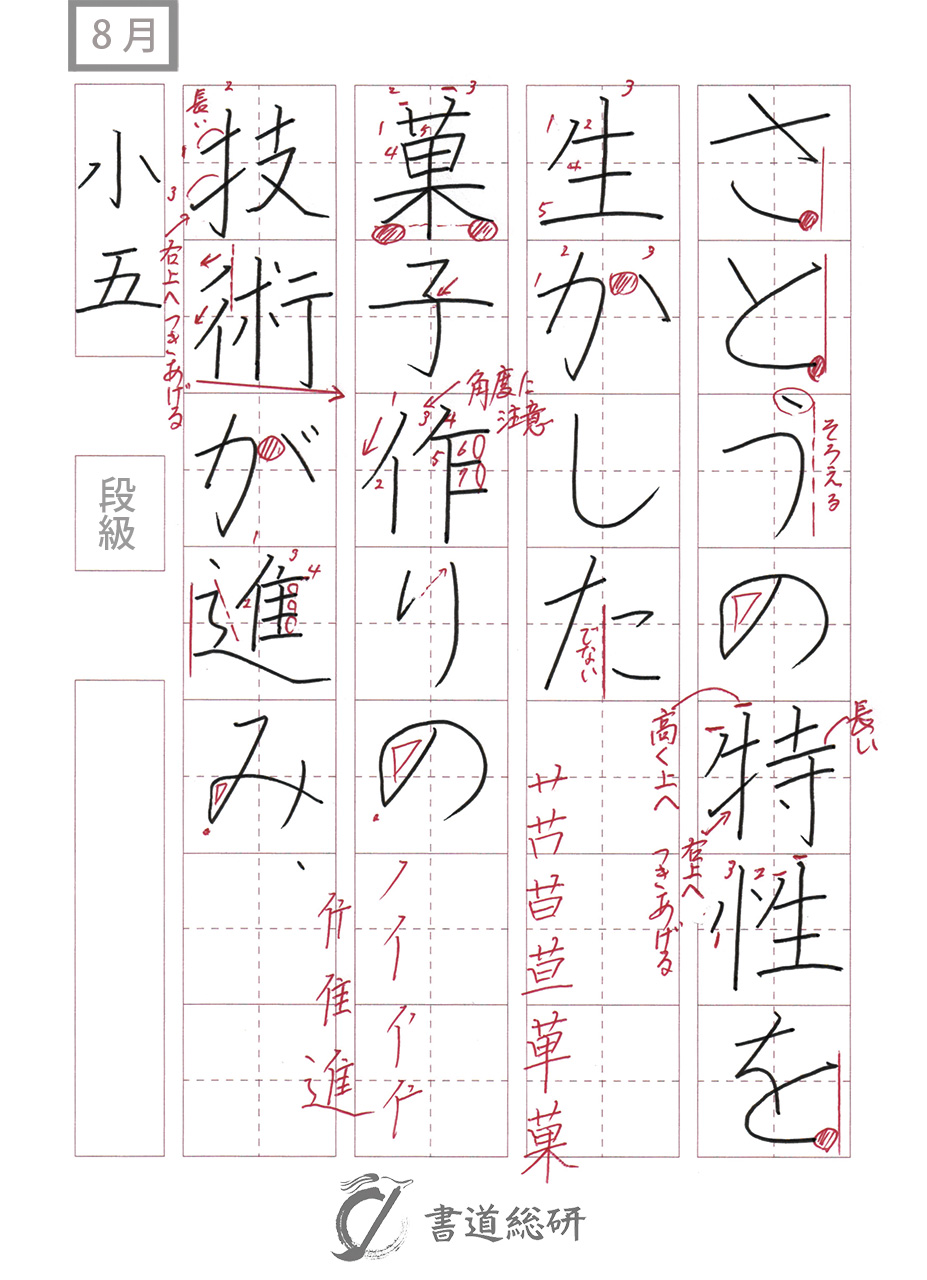 8月
さとうの特性を
生かした
菓子作りの
技術が進み、
小五
段級
そろえる
長い
高く上へ
右上へつきあげる
でない
角度に注意
長い
右上へつきあげる
書道総研